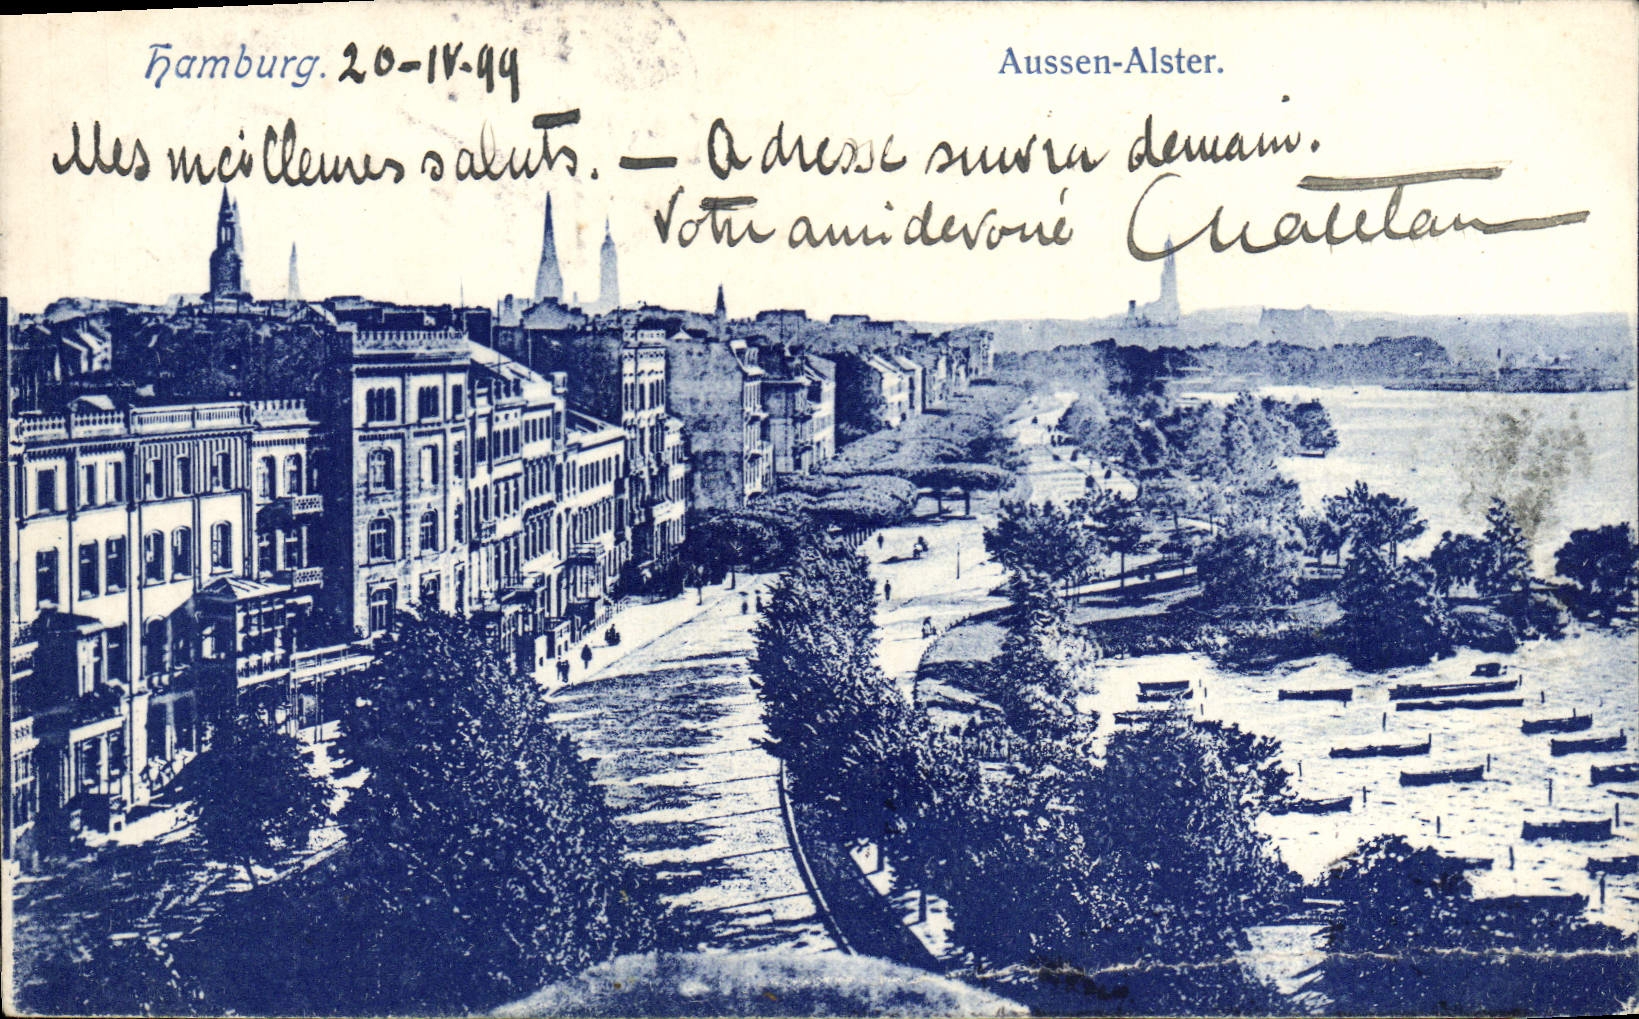 Hamburg. 20-IV-99
Aussen-Alster.
Mes meilleures saluts. — Adresse suivra demain.
Votre ami devoué